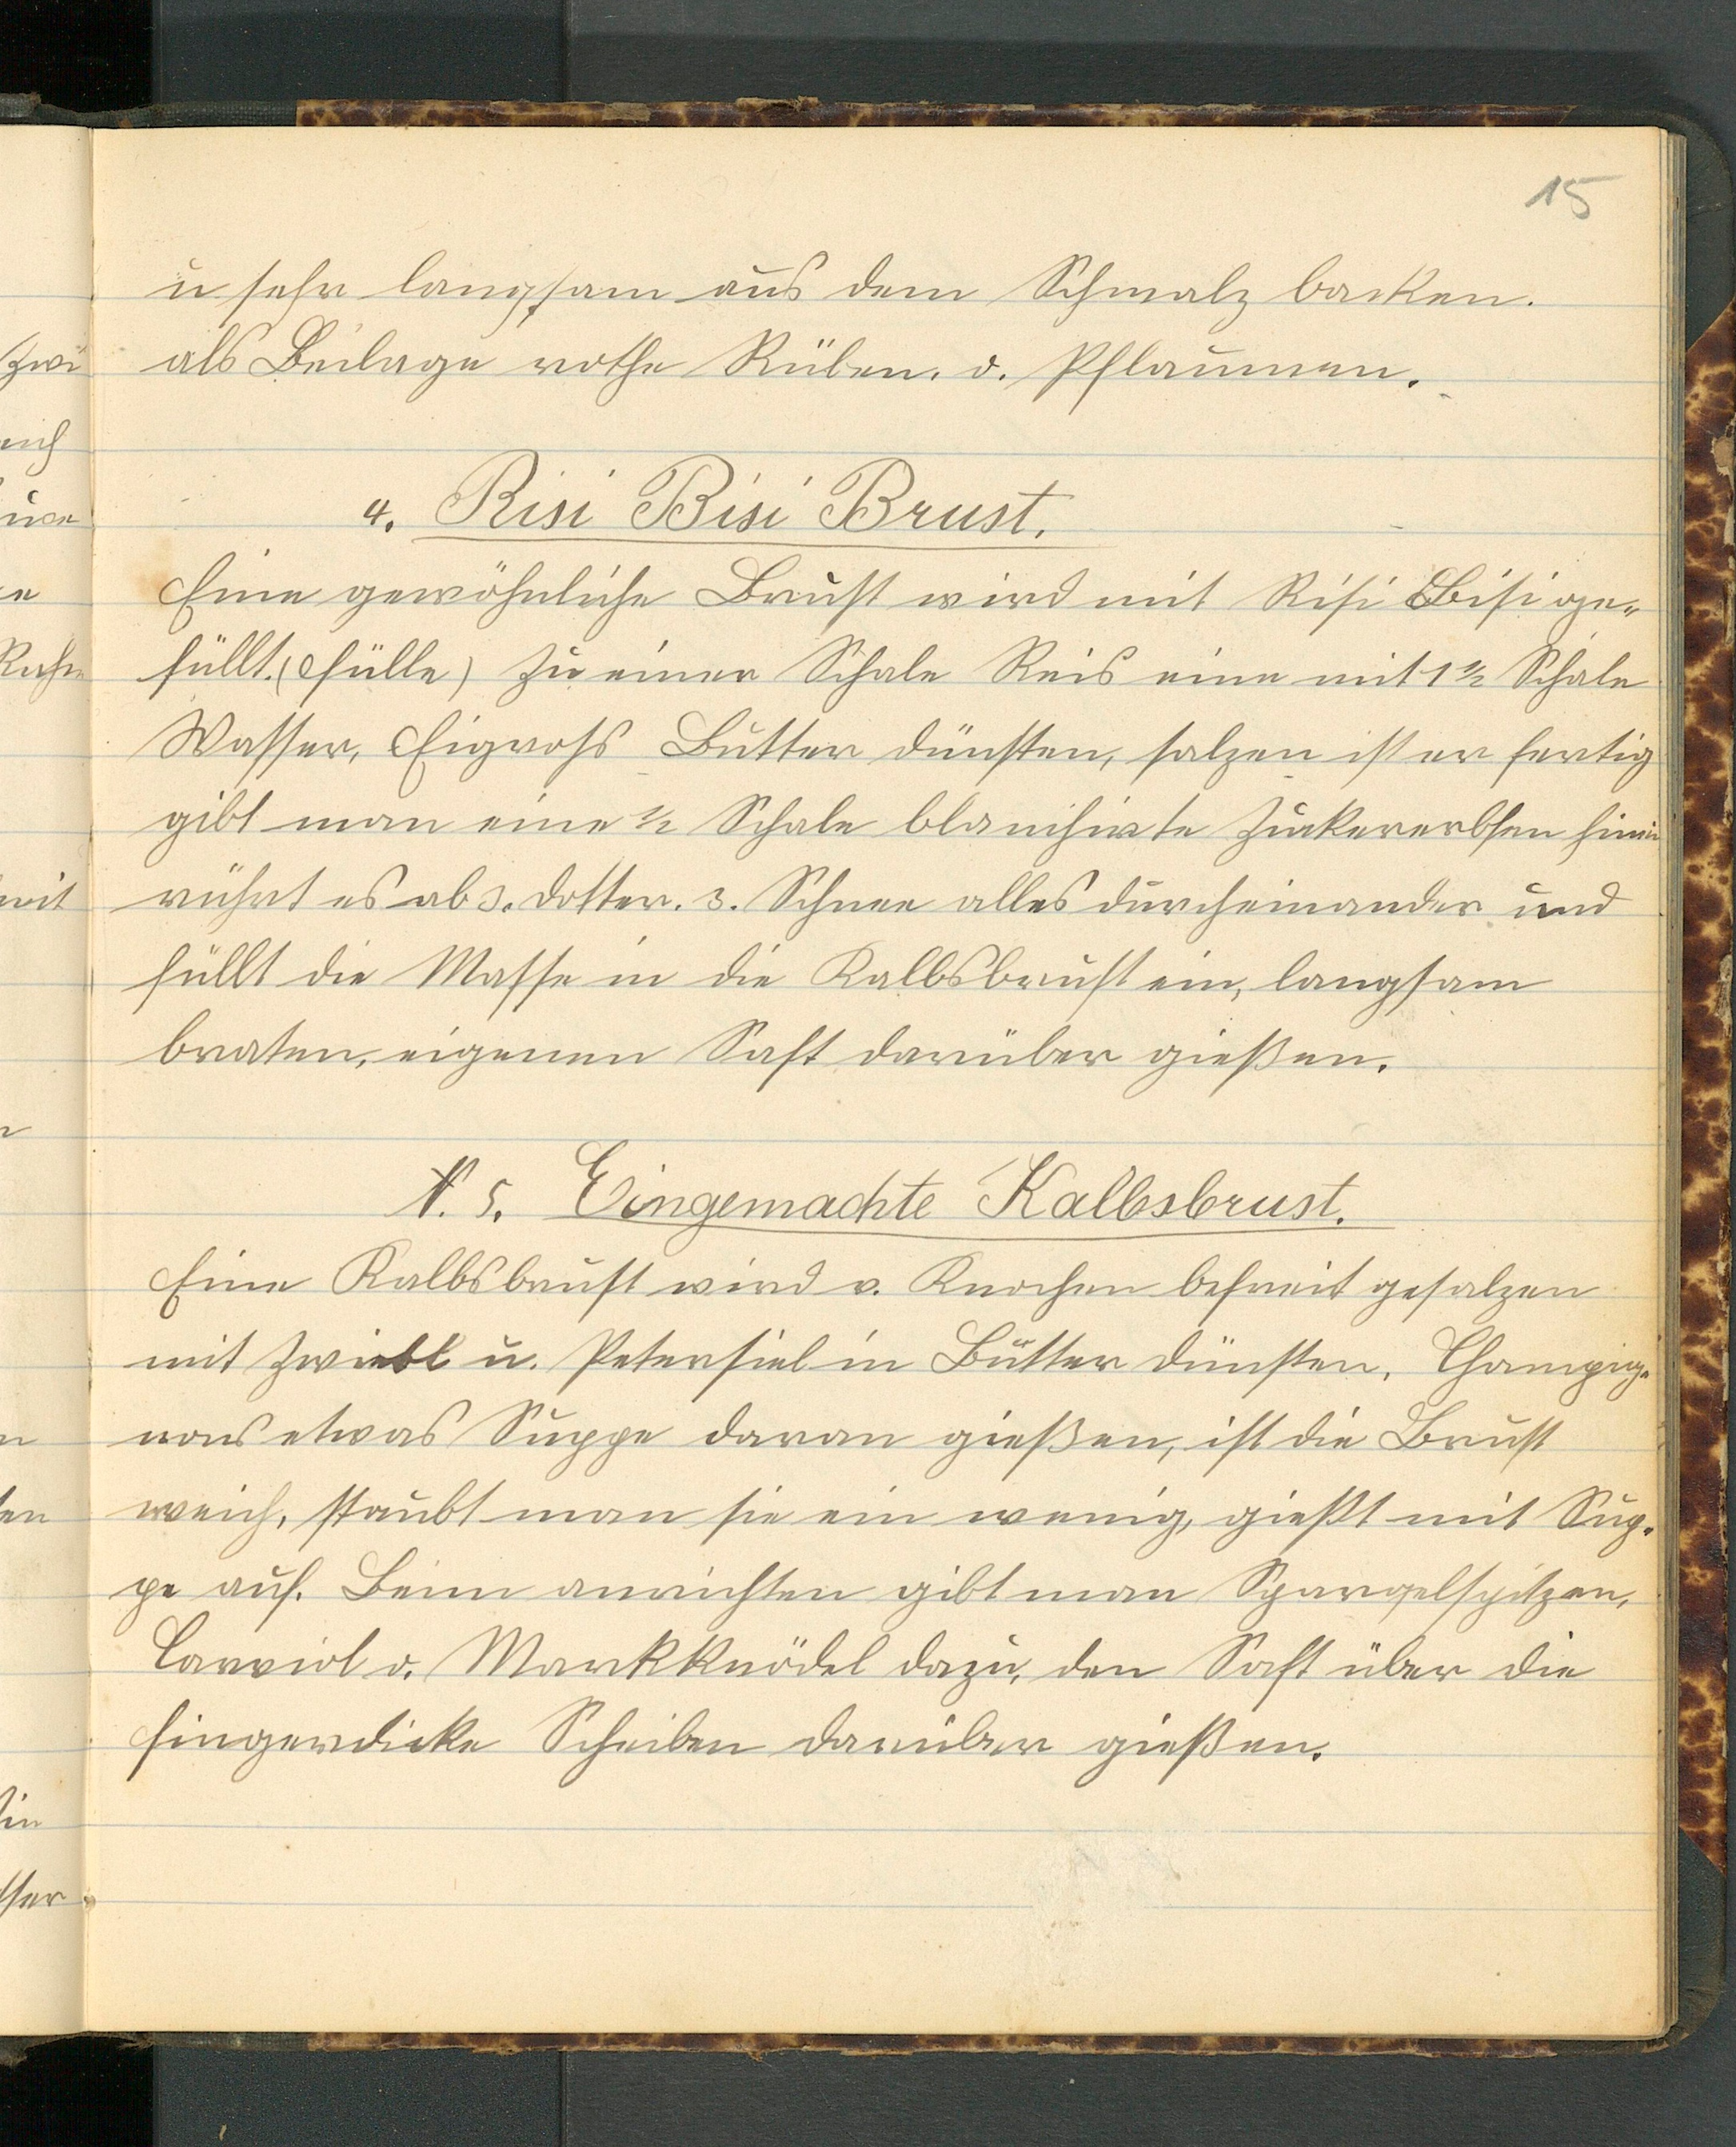 15
u sehr langsam aus dem Schmalz backen.
als Beilage rothe Rüben. o. Pflaumen.
4. Risi Bisi Brust.
Eine gewöhnliche Brust wird mit Risi Bisi ge-
füllt. (Fülle) Zu einer Schale Reis eine mit 1 ½ Schale
Wasser, Eigross Butter dünsten, salzen ist er fertig
gibt man eine ½ Schale blanchirte Zuckererbsen hinein
rührt es ab 3. Dotter. 3. Schnee alles durcheinander und
füllt die Masse in die Kalbsbrust ein, langsam
braten, eigenen Saft darüber gießen.
N. 5. Eingemachte Kalbsbrust.
Eine Kalbsbrust wird v. Knochen befreit gesalzen
mit Zwiebl u. Petersiel in Butter dünsten, Champig-
nons etwas Suppe daran gießen, ist die Brust
weich, staubt man sie ein wenig, gießt mit Sup-
pe auf. Beim anrichten gibt man Spargelspitzen,
Carviol o. Markknödel dazu, den Saft über die
fingerdicke Scheiben darüber gießen.